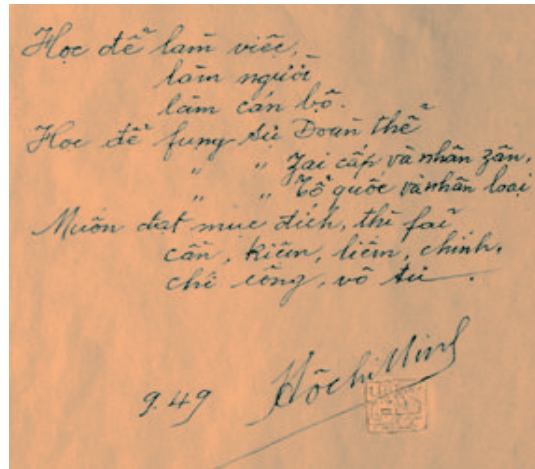 Học để làm việc,
làm người
làm cán bộ.
Học để fụng sự Đoàn thể
" " Zai cấp và nhân zân,
" " Tổ quốc và nhân loại
Muốn đạt mục đích, thì fải
cần, kiệm, liêm, chính,
chí công, vô tư.
9.49 Hồ Chí Minh